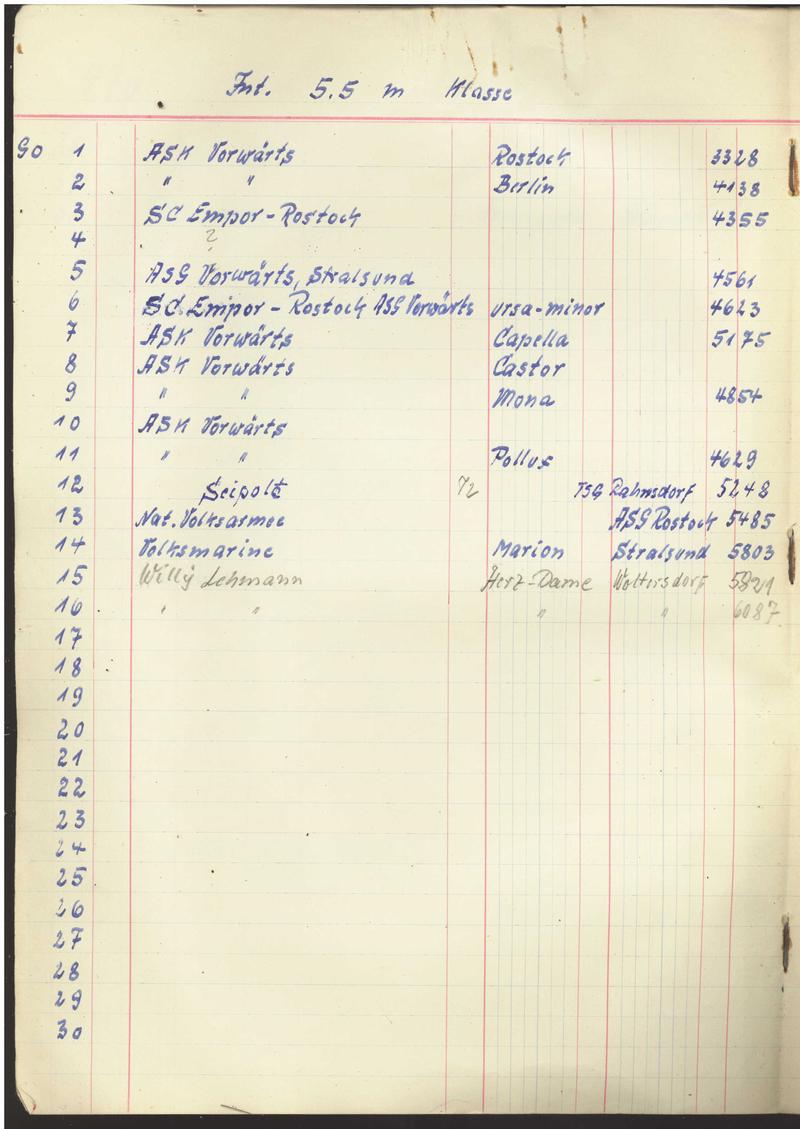 Int. 5.5 m Klasse
GO 1 ASK Vorwärts Rostock 3328
2 " " Berlin 4138
3 SC Empor-Rostock 4355
4 ?
5 ASG Vorwärts, Stralsund 4561
6 SC Empor - Rostock ASG Vorwärts ursa-minor 4623
7 ASK Vorwärts Capella 5175
8 ASK Vorwärts Castor
9 " " Mona 4854
10 ASK Vorwärts
11 " " Pollux 4629
12 Seipolt 72 TSG Rahnsdorf 5248
13 Nat. Volksarmee ASG Rostock 5485
14 Volksmarine Marion Stralsund 5803
15 Willy Lehmann Herz-Dame Woltersdorf 5821
16 " " " " 6087
17
18
19
20
21
22
23
24
25
26
27
28
29
30